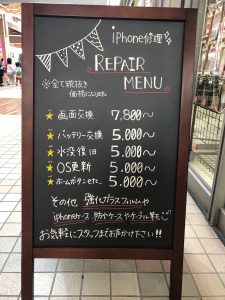 iPhone修理
REPAIR
MENU
※全て税抜き
価格になります。
★画面交換 7,800〜
★バッテリー交換 5,000〜
★水没復旧 5,000〜
★OS更新 5,000〜
★ホームボタンetc... 5,000〜
その他 強化ガラスフィルムや
iphoneケース、防水ケースやケーブル等も
お気軽にスタッフまでお声かけ下さい!!